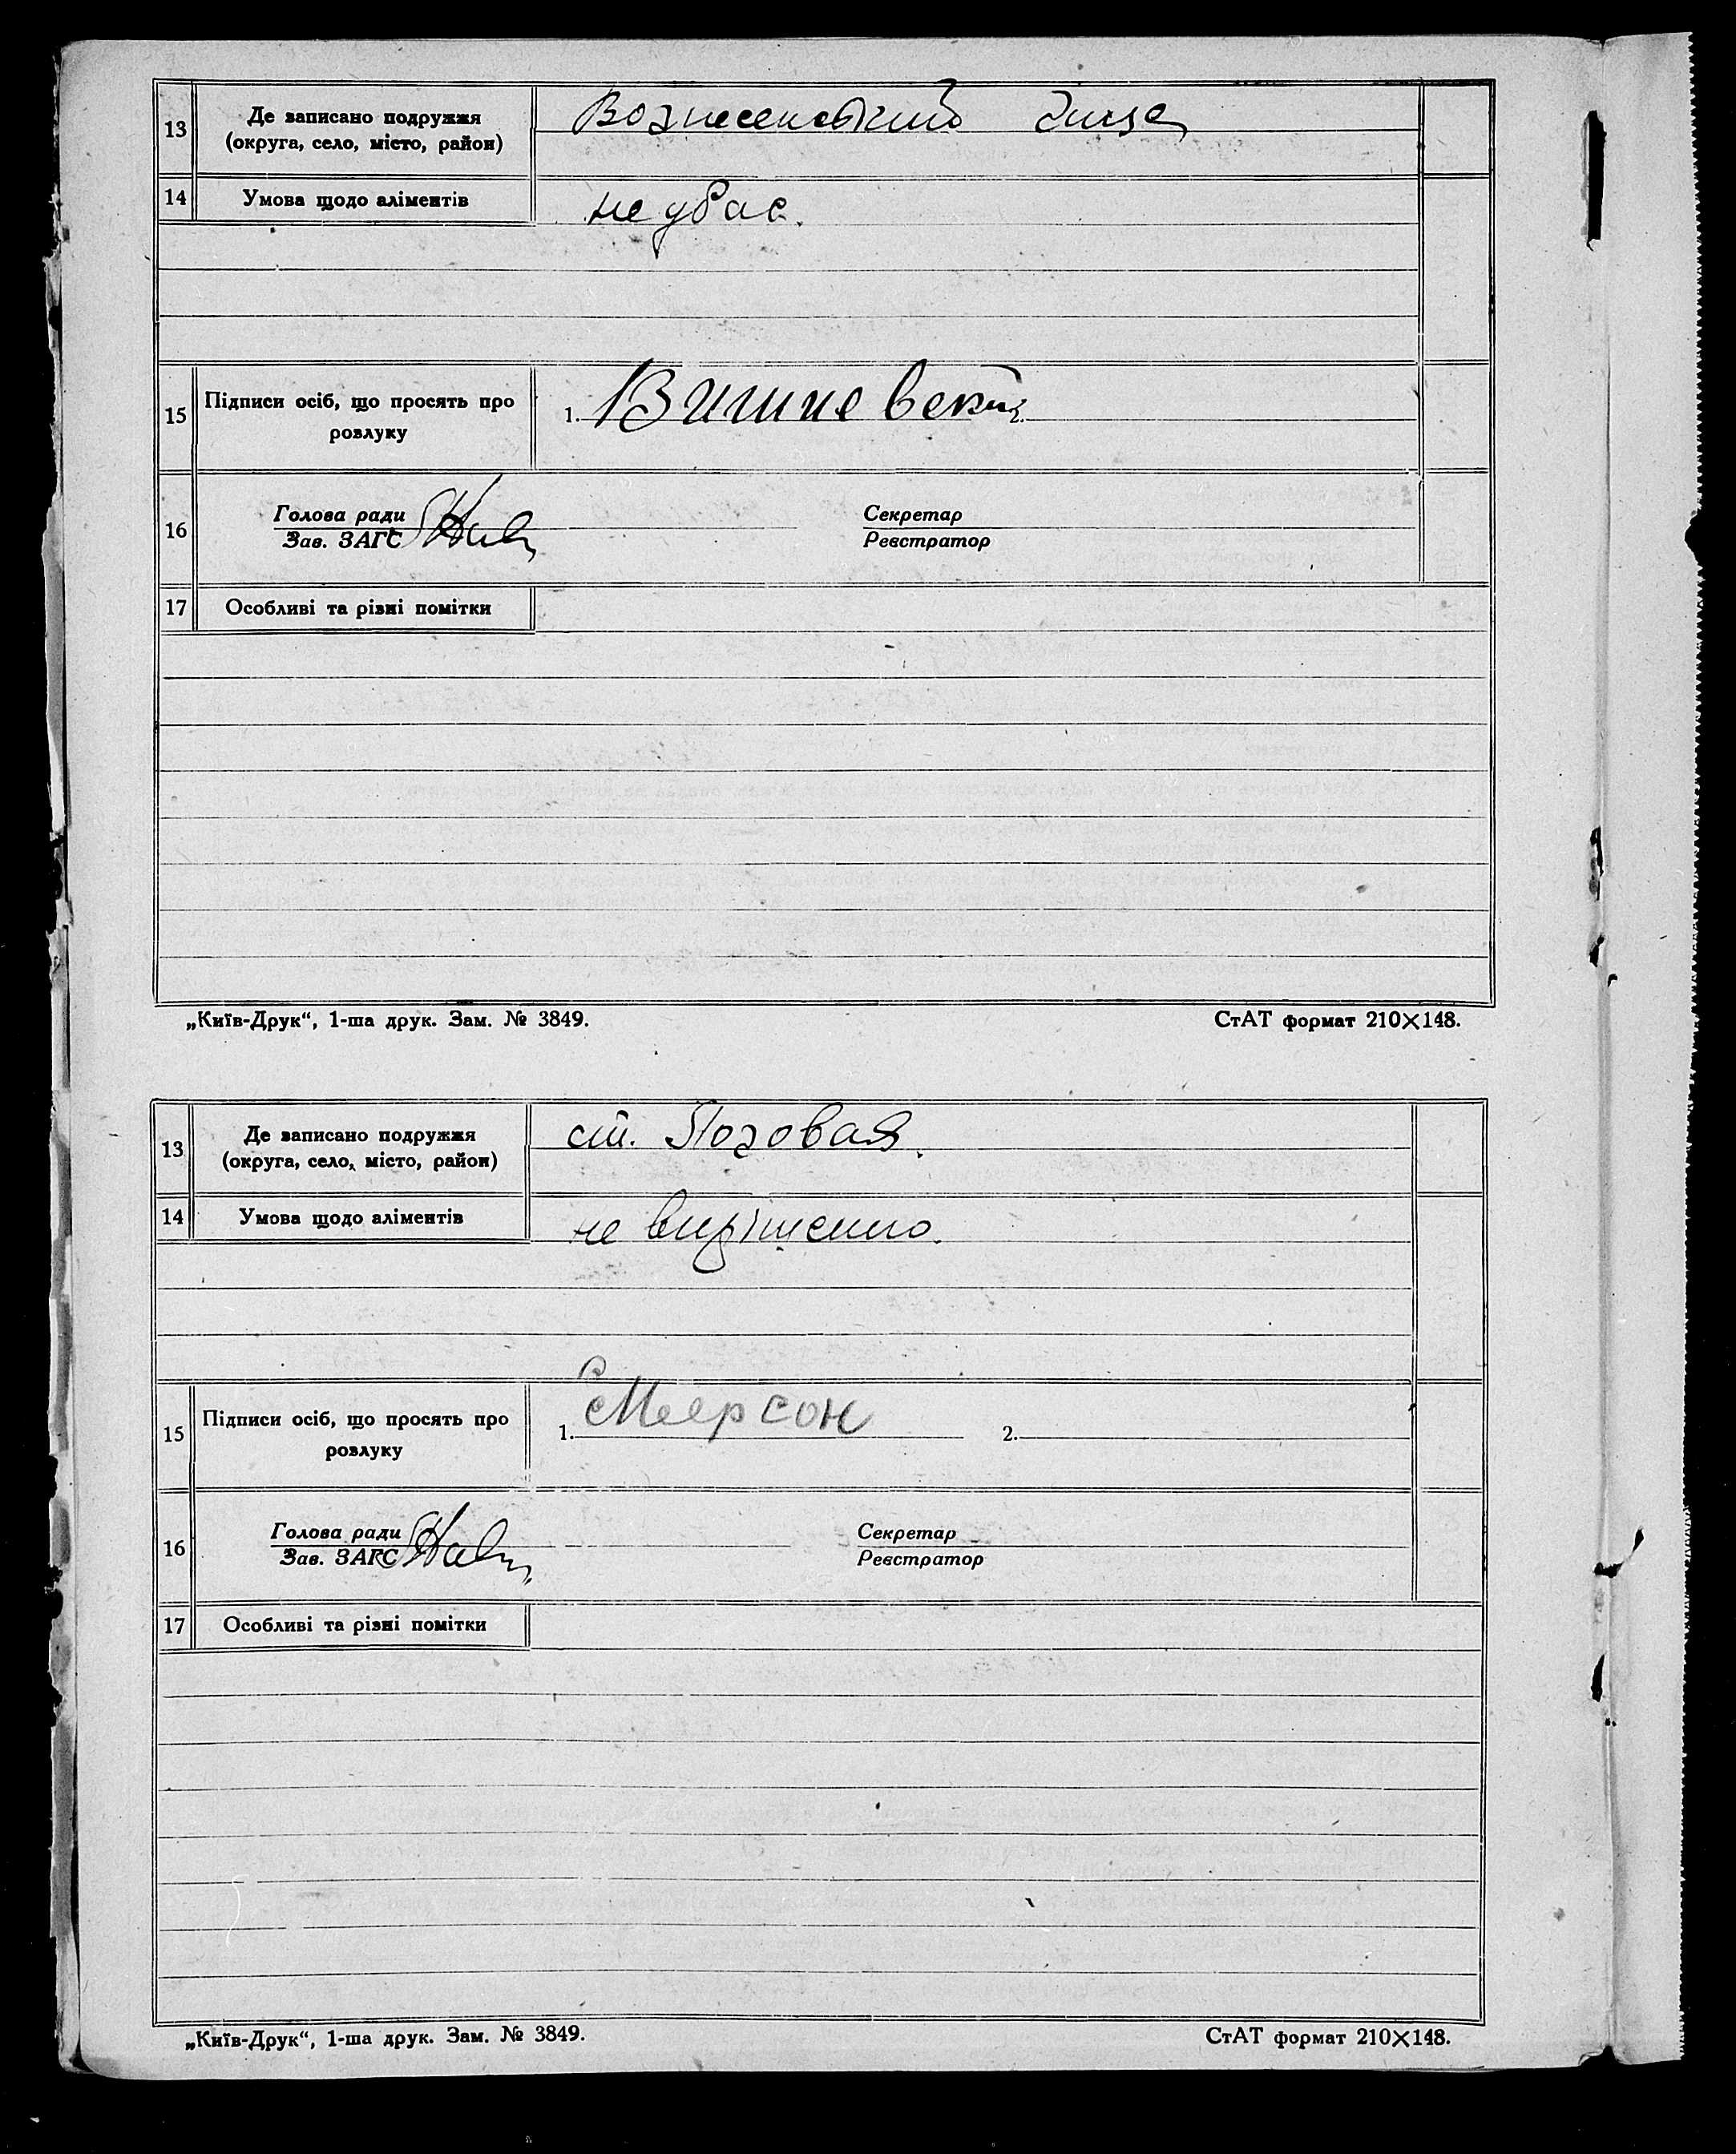 13
Де записано подружжя
(округа, село, місто, район)
Вознесенський
14
Умова щодо аліментів
не дбає.
15
Підписи осіб, що просять про
розлуку
1. Вишневский 2.
16
Голова ради
Зав. ЗАГС
Секретар
Реєстратор
17
Особливі та різні помітки
„Київ-Друк“, 1-ша друк. Зам. № 3849.
СтАТ формат 210×148.
13
Де записано подружжя
(округа, село, місто, район)
ст. Лозовая.
14
Умова щодо аліментів
не вирішено.
15
Підписи осіб, що просять про
розлуку
1. Меерсон
2.
16
Голова ради
Зав. ЗАГС
Секретар
Реєстратор
17
Особливі та різні помітки
„Київ-Друк“, 1-ша друк. Зам. № 3849.
СтАТ формат 210×148.